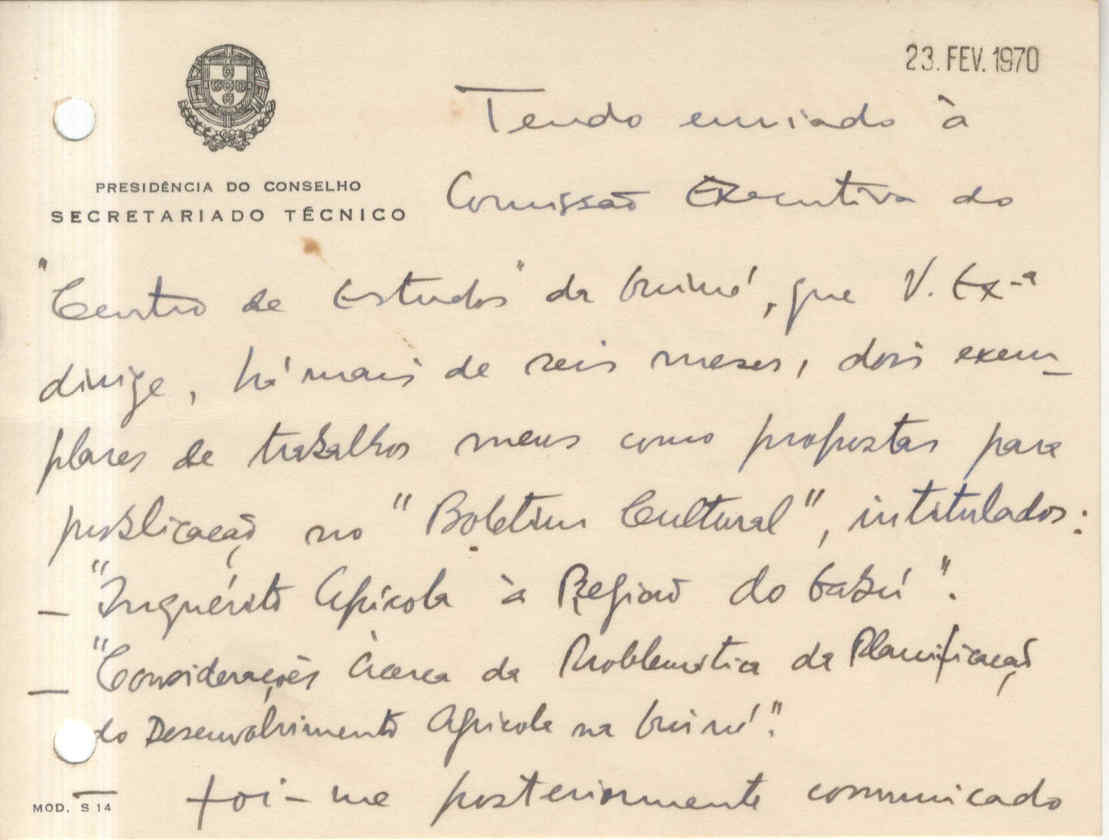 23. FEV. 1970
PRESIDÊNCIA DO CONSELHO
SECRETARIADO TÉCNICO
Tendo enviado à
Comissão Executiva do
"Centro de Estudos" da Guiné, que V. Ex-ª
dirige, há mais de seis meses, dois exem-
plares de trabalhos meus como propostas para
publicação no "Boletim Cultural", intitulados:
- "Inquérito Agrícola à Região do Gabú".
- "Considerações Àcerca da Problemática da Planificação
do Desenvolvimento Agrícola na Guiné".
foi-me posteriormente comunicado
MOD. S 14